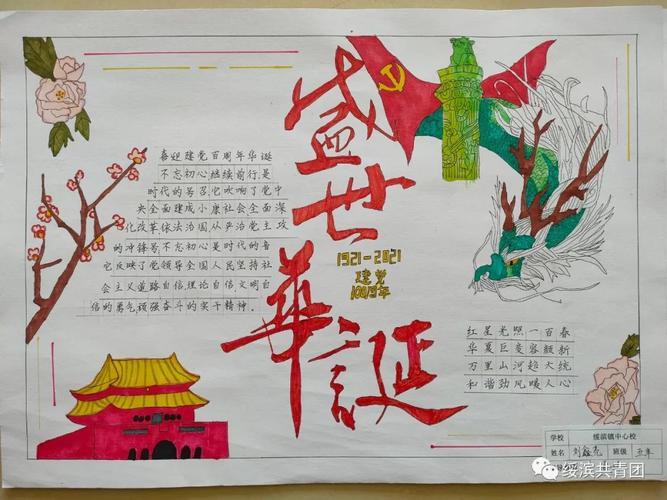 盛世
華誕
1921-2021
建党
100周年
喜迎建党百周年华诞
不忘初心继续前行是
时代的号召它吹响了党中
央全面建成小康社会全面深
化改革依法治国从严治党主攻
的冲锋号不忘初心是时代的音
它反映了党领导全国人民坚持社
会主义道路自信,理论自信,文明自
信的勇气,顽强奋斗的实干精神.
红星光照一百春
华夏巨变容颜新
万里山河超大统
和谐劲风暖人心
学校 绥滨镇中心校
姓名 刘鑫尧 班级 五年
绥滨共青团